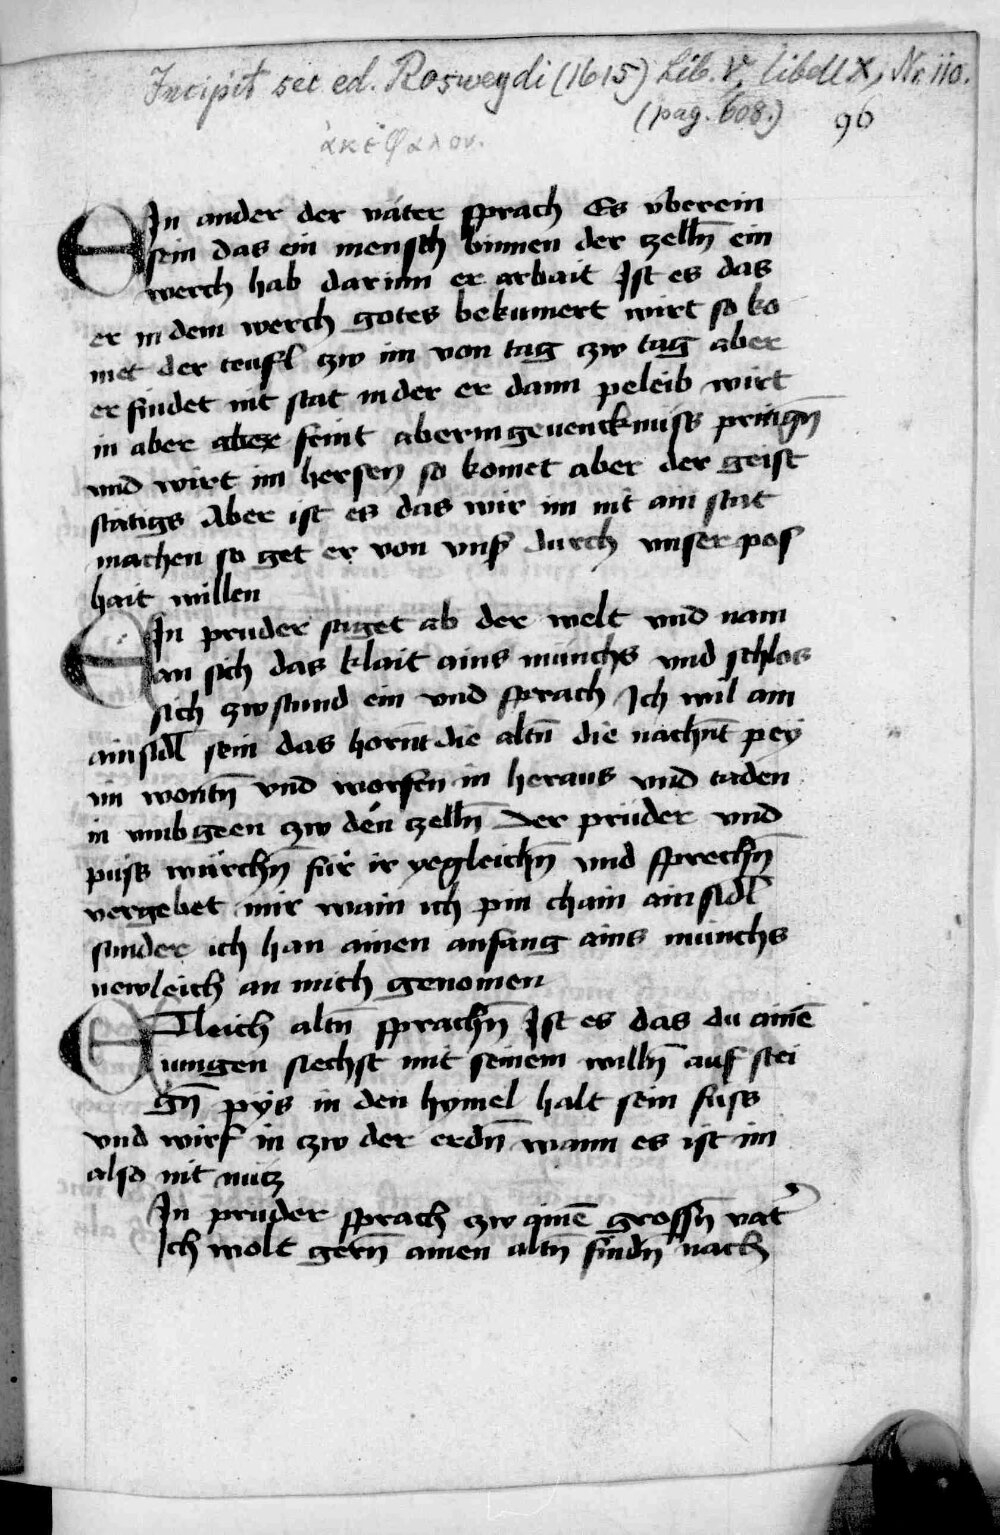 Incipit sec ed. Rosweydi (1615) Lib. V, libell X, Nr. 110.
(pag. 608.)
96
ἀκέφαλον.
EIn ander der väter sprach Es vberein
sein das ein mensch binnen der zelln̄ ein
werch hab darinn er arbait Ist es das
er in dem werch gotes bekumert wirt so ko
met der teufl czw im von tag czw tag aber
er findet nit stat in der er dann peleib wirt
in aber aber feint aber in geuencknuss pringn̄
vnd wirt im hersen so komet aber der geist
statigs Aber ist es das wir im nit ain stat
machen so get er von vns durch vnser pos
hait willen
EIn pruder stiget ab der welt vnd nam
an sich das klait ains münchs vnd schlos
sich czwstund ein vnd sprach Ich wil ain
ainsidl sein das hornt die altn̄ die nachnt pey
im wontn̄ vnd worfen in heraus vnd taden
in vmbgeen czw den zelln̄ Der prüder vnd
puss würchn̄ für ir yegleichn̄ vnd sprechn̄
vergebet mir wann ich pin chain ainsidl
sunder ich han ainen anfang ains münchs
newleich an mich genomen
Etleich altn̄ sprachn̄ Ist es das du ainē
iungen siechst mit seinem willn̄ auf stei
gn̄ pys in den hymel halt sein fuss
vnd wirf in czw der erdn̄ wann es ist im
also nit nücz
In pruder sprach czw ainē grossn̄ vat
Ich wolt gern̄ ainen altn̄ findn̄ nach